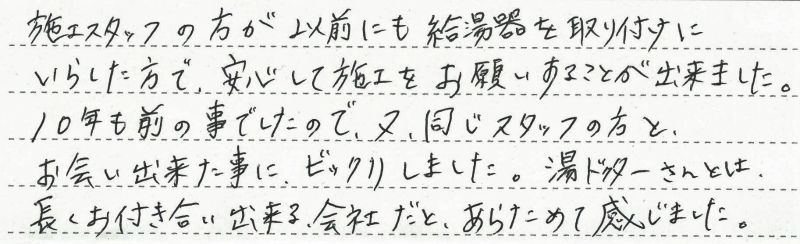 施工スタッフの方が以前にも給湯器を取り付けに
いらした方で、安心して施工をお願いすることが出来ました。
10年も前の事でしたので、又、同じスタッフの方と、
お会い出来た事に、ビックリしました。湯ドクターさんとは、
長くお付き合い出来る、会社だと、あらためて感じました。